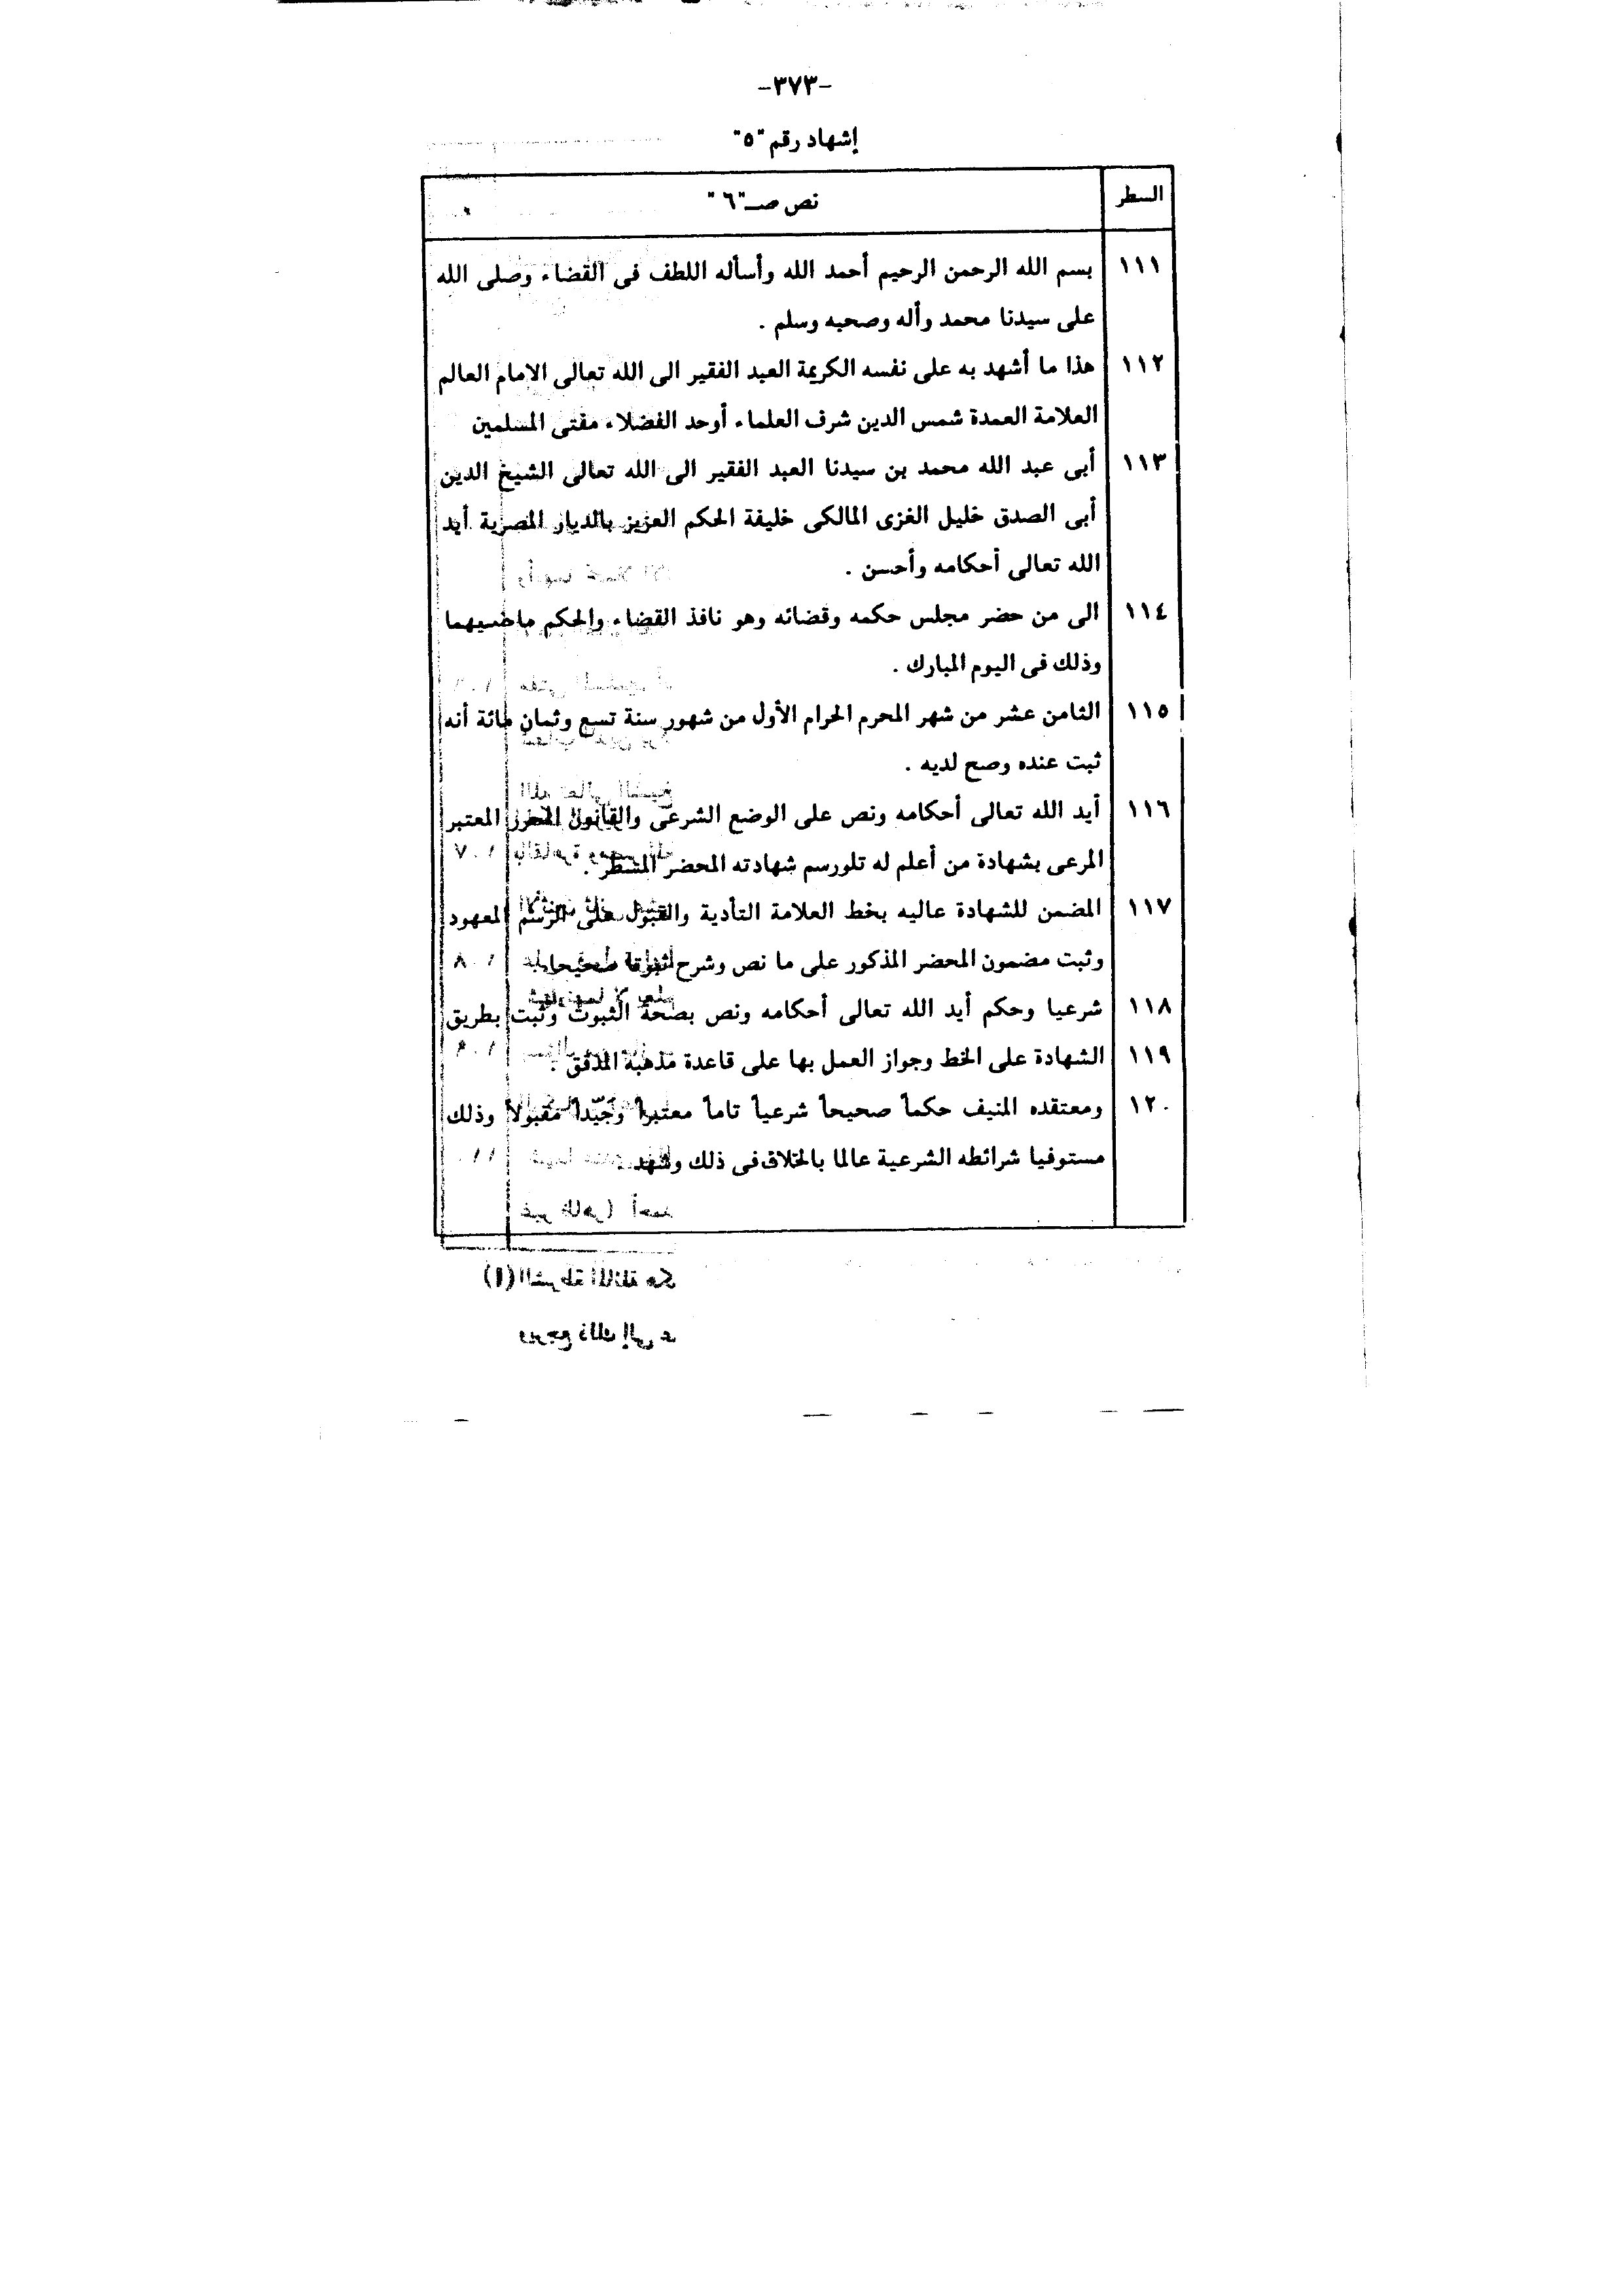 -٣٧٣-
إشهاد رقم "٥"
السطر نص صـ"٦"
١١١ بسم الله الرحمن الرحيم أحمد الله وأسأله اللطف فى القضاء وصلى الله
على سيدنا محمد وأله وصحبه وسلم .
١١٢ هذا ما أشهد به على نفسه الكريمة العبد الفقير الى الله تعالى الامام العالم
العلامة العمدة شمس الدين شرف العلماء أوحد الفضلاء مفتى المسلمين
١١٣ أبى عبد الله محمد بن سيدنا العبد الفقير الى الله تعالى الشيخ الدين
أبى الصدق خليل الغزى المالكى خليفة الحكم العزيز بالديار المصرية أيد
الله تعالى أحكامه وأحسن .
١١٤ الى من حضر مجلس حكمه وقضائه وهو نافذ القضاء والحكم ماضيهما
وذلك فى اليوم المبارك .
١١٥ الثامن عشر من شهر المحرم الحرام الأول من شهور سنة تسع وثمان مائة أنه
ثبت عنده وصح لديه .
١١٦ أيد الله تعالى أحكامه ونص على الوضع الشرعى والقانون المحرر المعتبر
المرعى بشهادة من أعلم له تلورسم شهادته المحضر المسطر .
١١٧ المضمن للشهادة عاليه بخط العلامة التأدية والقبول على الرسم المعهود
وثبت مضمون المحضر المذكور على ما نص وشرح ثبوتا صحيحا
١١٨ شرعيا وحكم أيد الله تعالى أحكامه ونص بصحة الثبوت وثبت بطريق
١١٩ الشهادة على الخط وجواز العمل بها على قاعدة مذهبه
١٢٠ ومعتقده المنيف حكماً صحيحاً شرعياً تاماً معتبراً وجَيّداً مقبولاً وذلك
مستوفيا شرائطه الشرعية عالما بالخلاف فى ذلك وشهد .